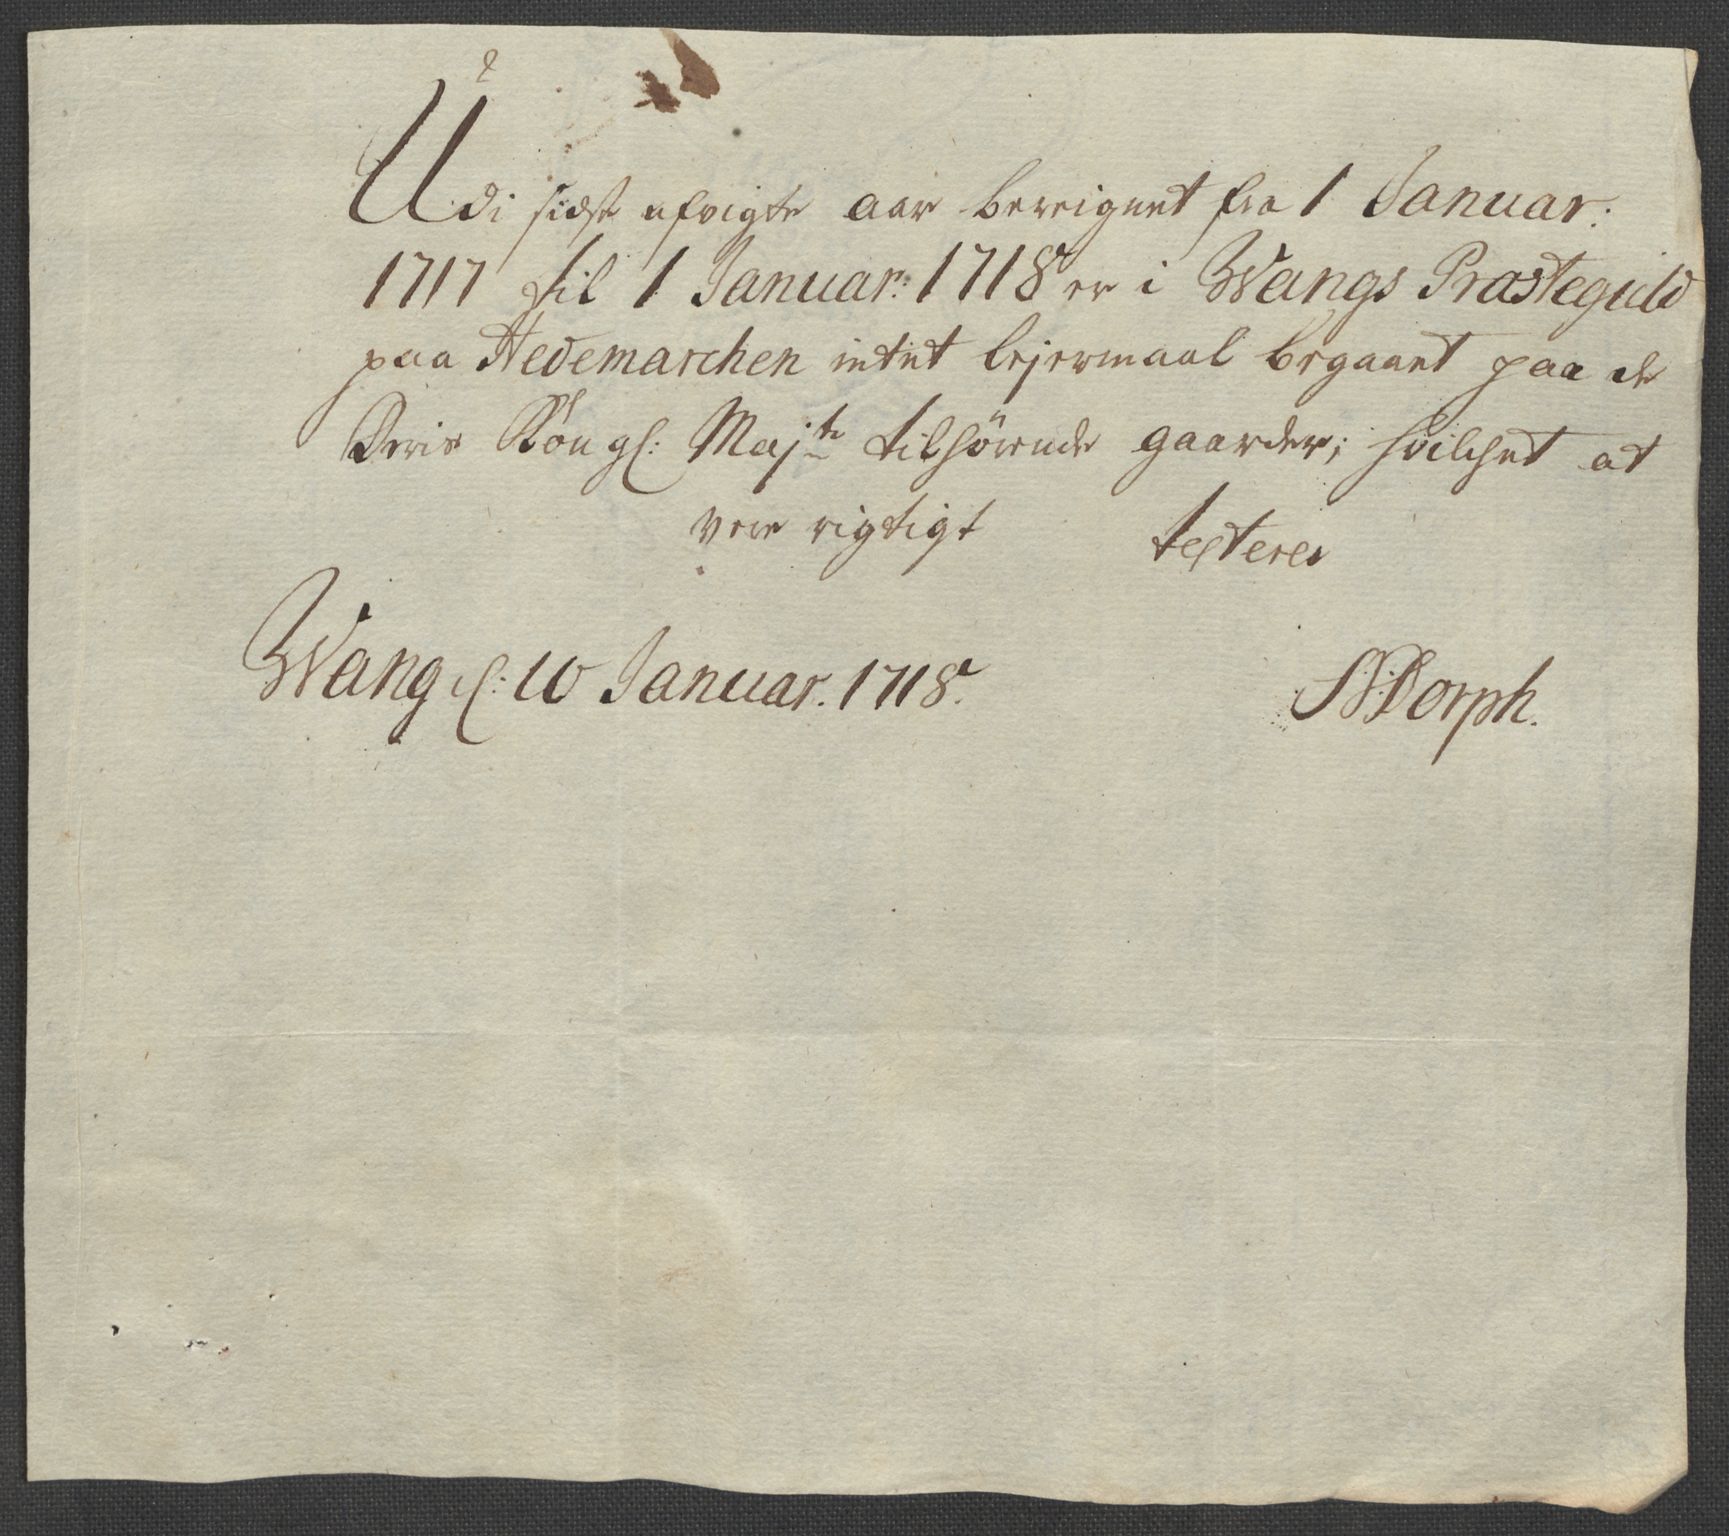 Udi sidste afvigte aar bereignet fra 1 Januar:
1717 til 1 Januar: 1718 er i Wangs Præstegield
paa Hedemarchen intet lejermaal begaaet paa de
Deris Kongl: Majte tilhörende gaarder; hvilchet at
vere rigtigt testerer
Wang d: 10 Januar. 1718.
Dorph.